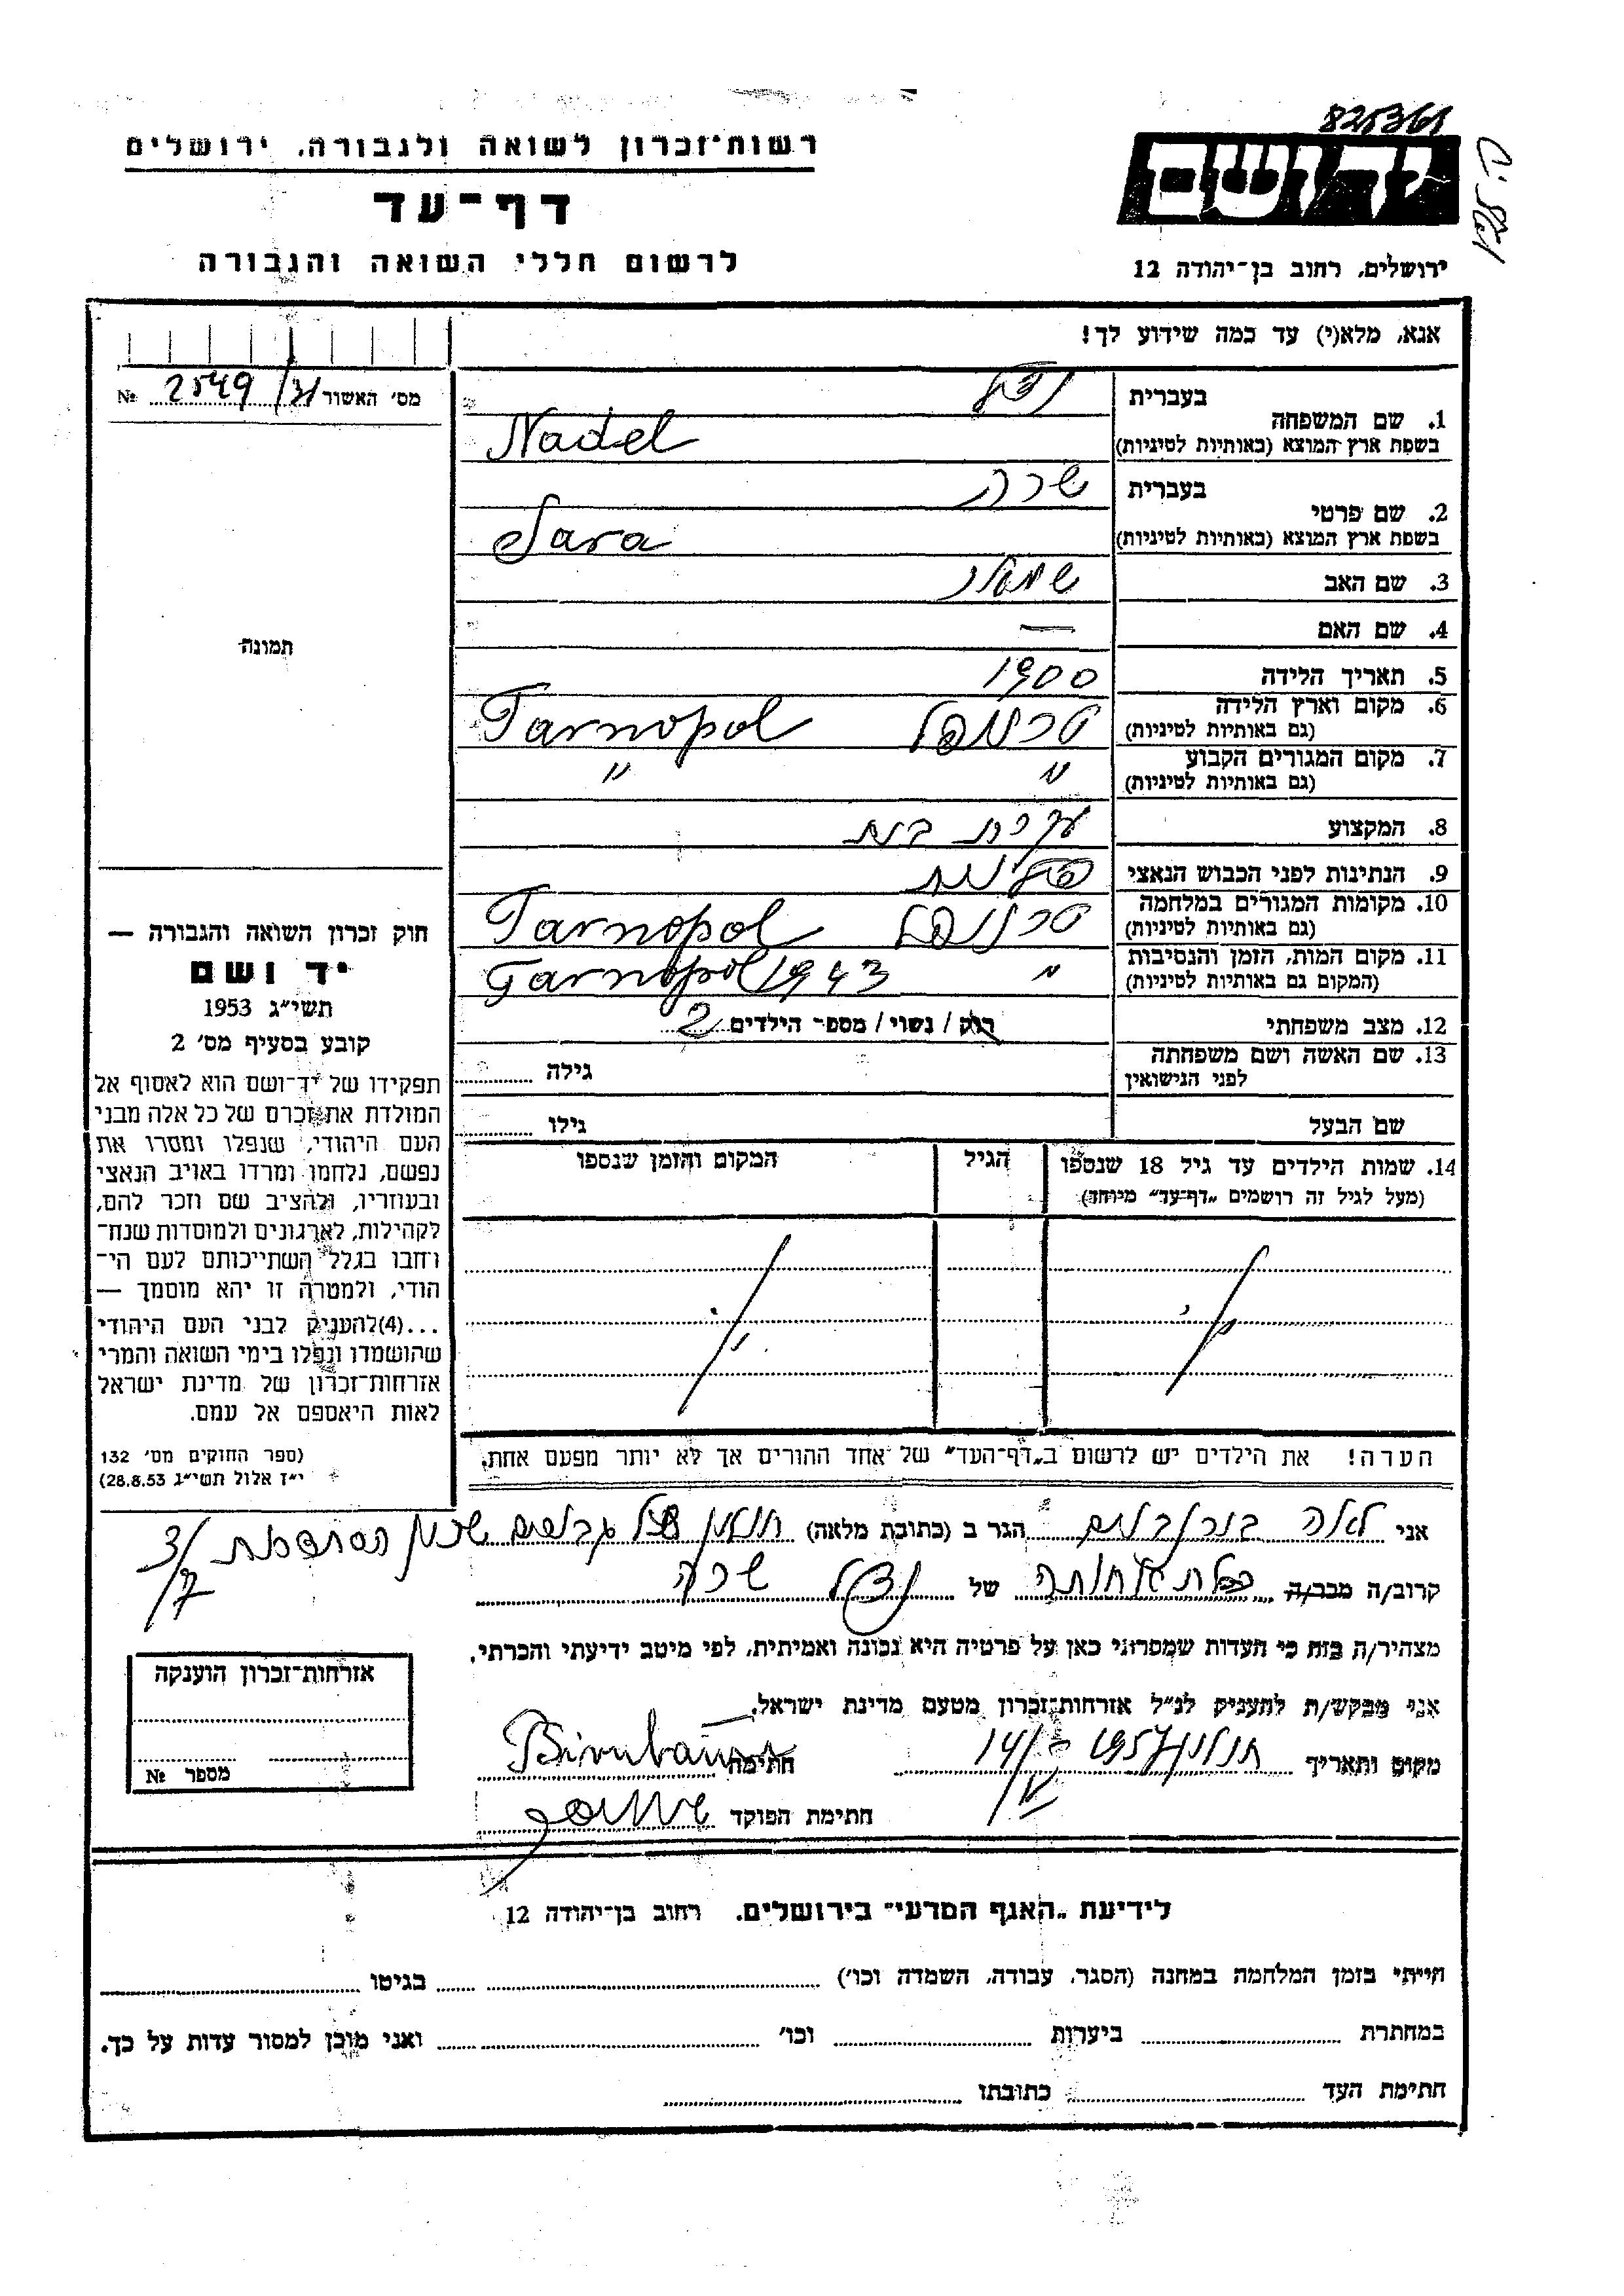 825361
רשות־זכרון לשואה ולגבורה, ירושלים
דף־עד
לרשום חללי השואה והגבורה
יד ושם
ירושלים, רחוב בן־יהודה 12
אנא, מלא(י) עד כמה שידוע לך!
מס׳ האשור 31/ 2549 №
תמונה
בעברית נדל
1. שם המשפחה
בשפת ארץ המוצא (באותיות לטיניות) Nadel
בעברית שרה
2. שם פרטי
בשפת ארץ המוצא (באותיות לטיניות) Sara
3. שם האב
4. שם האם —
5. תאריך הלידה 1900
6. מקום וארץ הלידה טרנופל Tarnopol
(גם באותיות לטיניות)
7. מקום המגורים הקבוע " "
(גם באותיות לטיניות)
8. המקצוע עקרת בית
9. הנתינות לפני הכבוש הנאצי פולנית
10. מקומות המגורים במלחמה טרנופל Tarnopol
(גם באותיות לטיניות)
11. מקום המות, הזמן והנסיבות " Tarnopol 1943
(המקום גם באותיות לטיניות)
12. מצב משפחתי רוק / נשוי / מספר הילדים 2
13. שם האשה ושם משפחתה גילה
לפני הנישואין
שם הבעל גילו
14. שמות הילדים עד גיל 18 שנספו הגיל המקום והזמן שנספו
(מעל לגיל זה רושמים „דף־עד” מיוחד)
הערה! את הילדים יש לרשום ב„דף־העד” של אחד ההורים אך לא יותר מפעם אחת.
חוק זכרון השואה והגבורה —
יד ושם
תשי״ג 1953
קובע בסעיף מס׳ 2
תפקידו של יד־ושם הוא לאסוף אל
המולדת את זכרם של כל אלה מבני
העם היהודי, שנפלו ומסרו את
נפשם, נלחמו ומרדו באויב הנאצי
ובעוזריו, ולהציב שם וזכר להם,
לקהילות, לארגונים ולמוסדות שנח־
רחבו בגלל השתייכותם לעם הי־
הודי, ולמטרה זו יהא מוסמך —
...(4)להעניק לבני העם היהודי
שהושמדו ונפלו בימי השואה והמרי
אזרחות־זכרון של מדינת ישראל
לאות היאספם אל עמם.
(ספר החוקים מס׳ 132
י״ז אלול תשי״ג 28.8.53)
אני לאה בירנבוים הגר ב (כתובת מלאה) חולון
קרוב/ה מכר/ה של נדל שרה
מצהיר/ה בזה כי העדות שמסרתי כאן על פרטיה היא נכונה ואמיתית, לפי מיטב ידיעתי והכרתי.
אני מבקש/ת להעניק לנ״ל אזרחות־זכרון מטעם מדינת ישראל.
מקום ותאריך חולון 1957 14/V חתימה Birnbaum
חתימת הפוקד
אזרחות־זכרון הוענקה
מספר №
לידיעת „האגף המדעי” בירושלים, רחוב בן־יהודה 12
הייתי בזמן המלחמה במחנה (הסגר, עבודה, השמדה וכו׳) בגיטו
במחתרת ביערות וכו׳ ואני מוכן למסור עדות על כך.
חתימת העד כתובתו